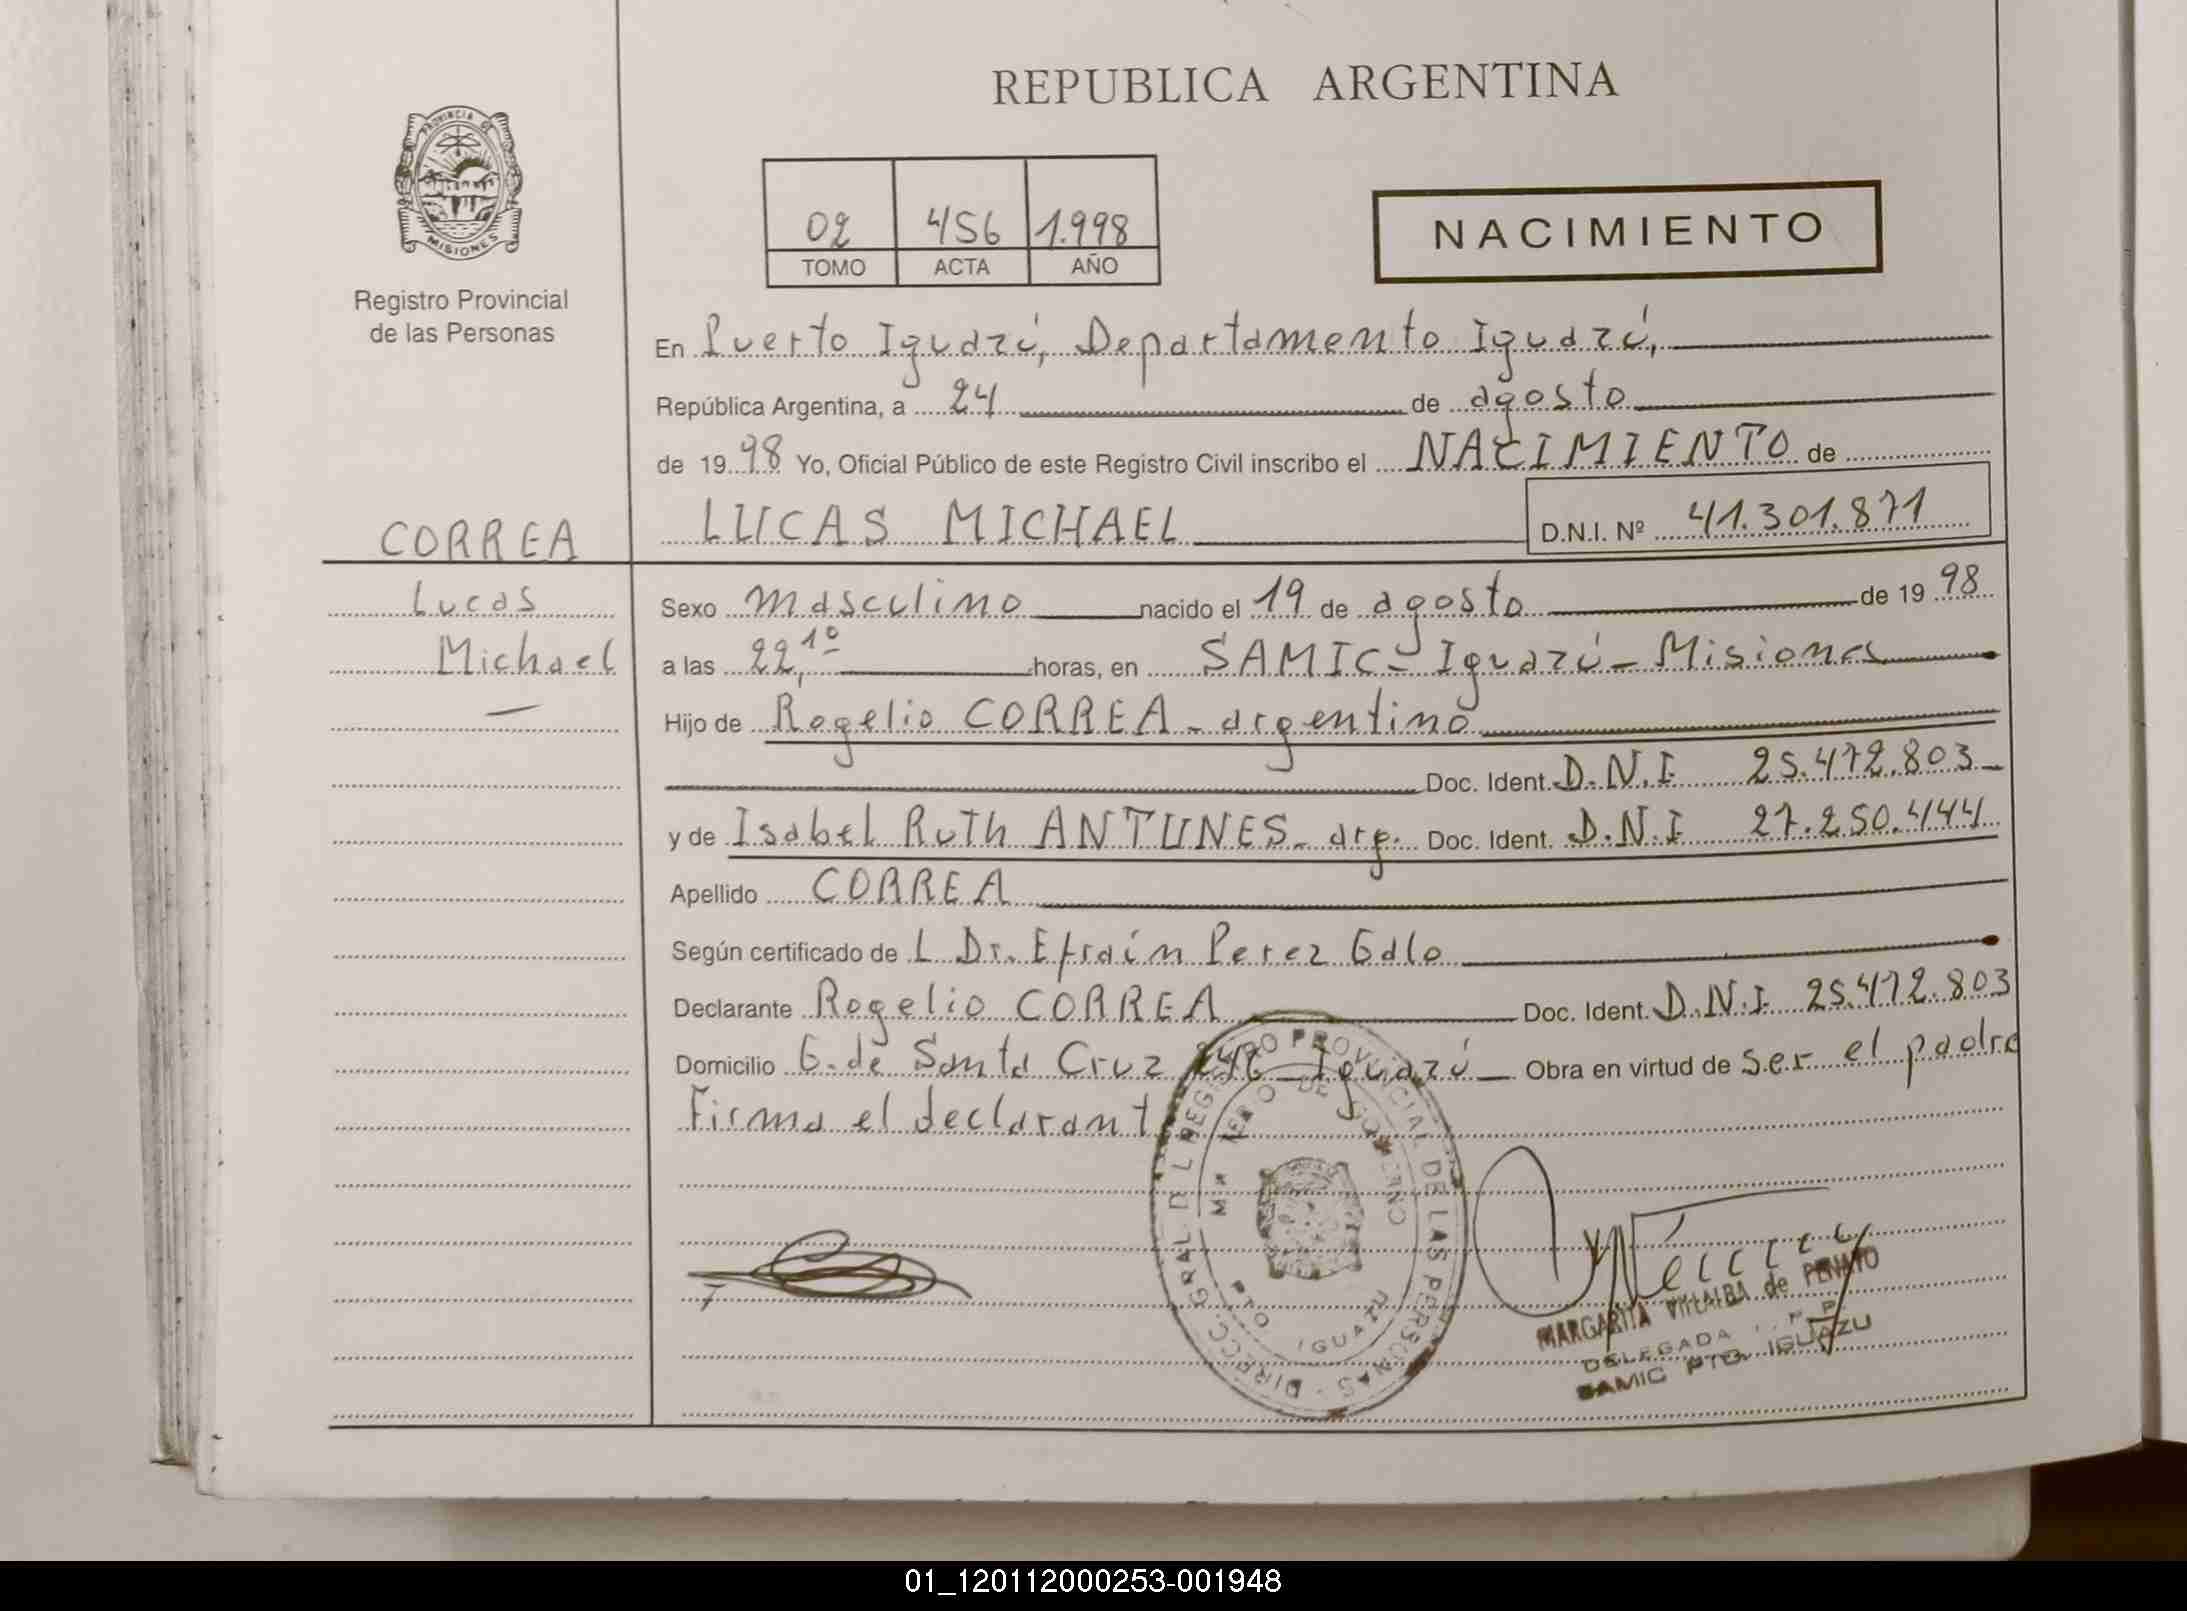 REPUBLICA ARGENTINA
PROVINCIA DE
MISIONES
Registro Provincial
de las Personas
02 456 1.998
TOMO ACTA AÑO
NACIMIENTO
En Puerto Iguazú, Departamento Iguazú,
República Argentina, a 24 de agosto
de 1998 Yo, Oficial Público de este Registro Civil inscribo el NACIMIENTO de
CORREA LUCAS MICHAEL D.N.I. Nº 41.301.871
Lucas Sexo masculino nacido el 19 de agosto de 1998
Michael a las 22,10 horas, en SAMIC - Iguazú - Misiones
Hijo de Rogelio CORREA - argentino
Doc. Ident. D.N.I 25.472.803
y de Isabel Ruth ANTUNES - arg. Doc. Ident. D.N.I 27.250.444
Apellido CORREA
Según certificado de L Dr. Efraín Perez Galo
Declarante Rogelio CORREA Doc. Ident. D.N.I. 25.472.803
Domicilio G. de Santa Cruz Iguazú Obra en virtud de ser el padre
Firma el declarant
DIRECC. GRAL DEL REGISTRO PROVINCIAL DE LAS PERSONAS
DE GOBIERNO
PTO IGUAZU
MARGARITA VILLALBA de PENAYO
DELEGADA
SAMIC PTO. IGUAZU
01_120112000253-001948